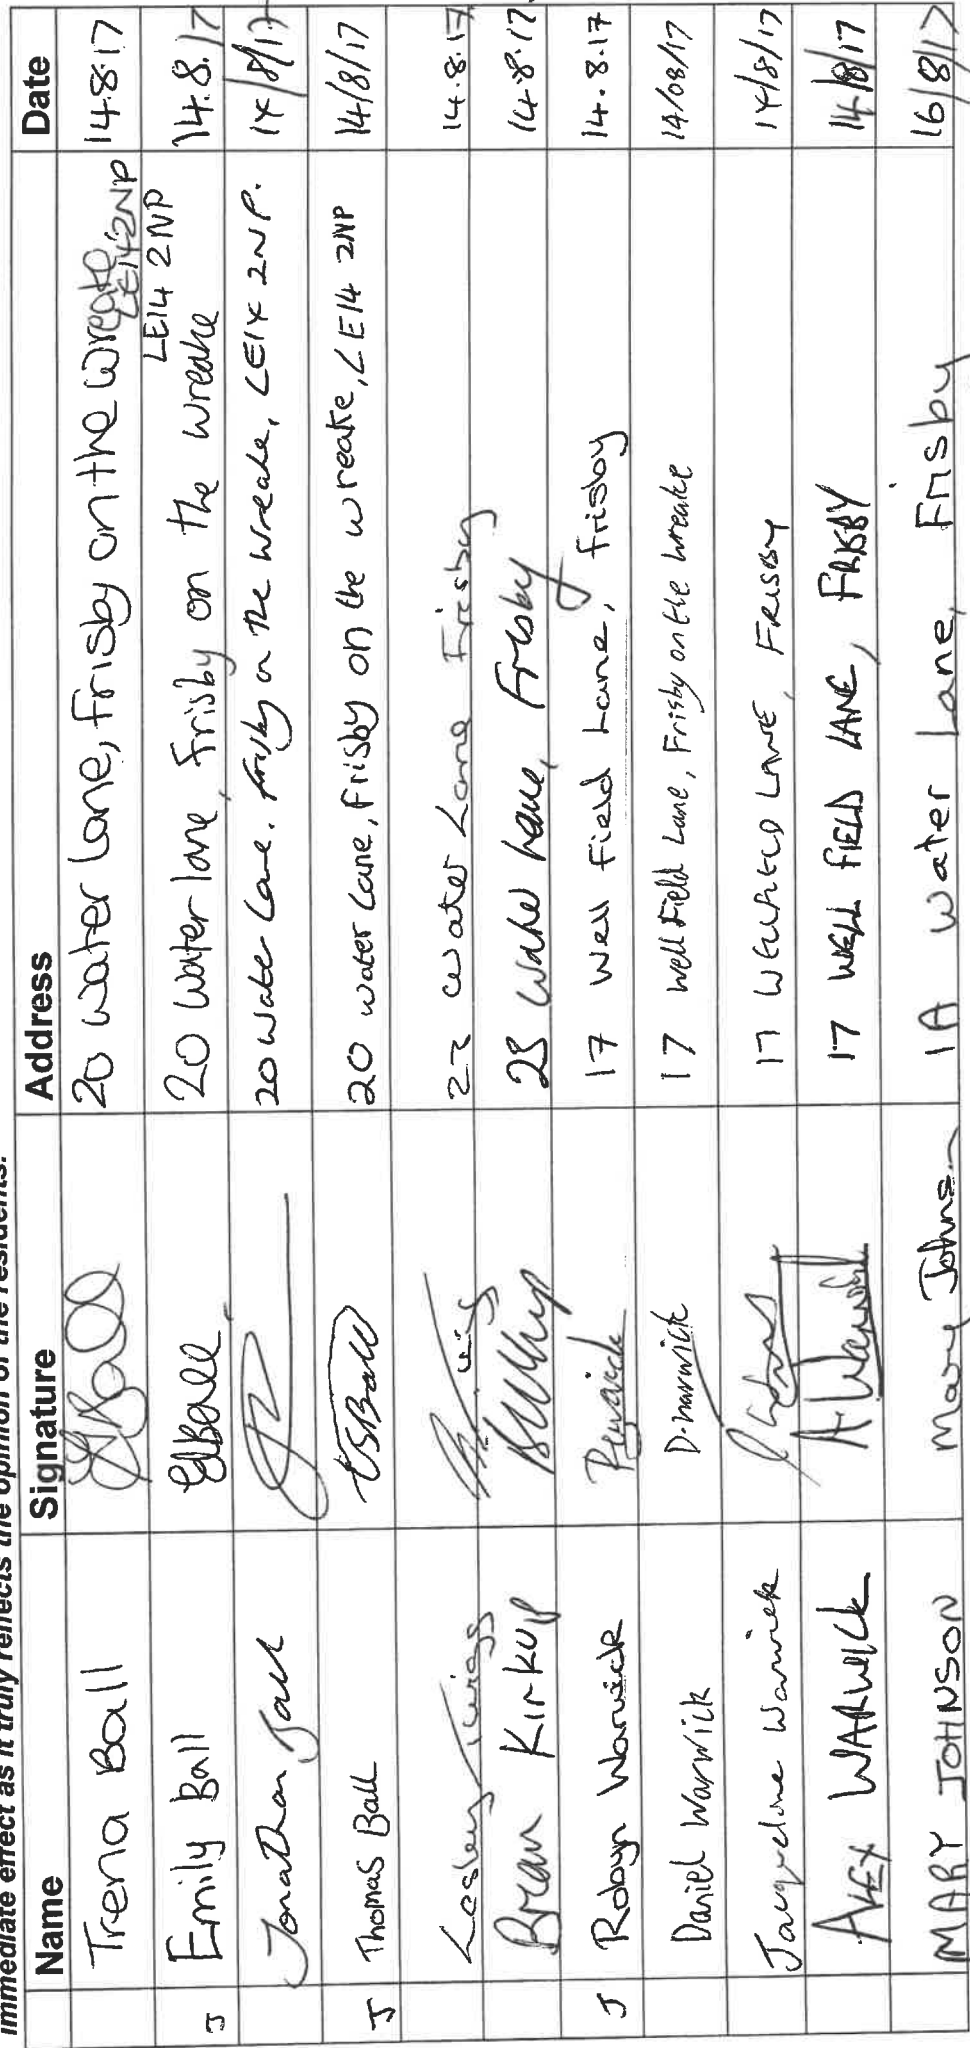 immediate effect as it truly reflects the opinion of the residents.
Name Signature Address Date
Trena Ball 20 Water Lane, Frisby on the Wreake LE14 2NP 14.8.17
J Emily Ball EBall 20 Water lane, Frisby on the wreake LE14 2NP 14.8.17
Jonathan 20 Water Lane. Frisby on the Wreake, LE14 2NP. 14/8/17
J Thomas Ball TSBall 20 water Lane, Frisby on the wreake, LE14 2NP 14/8/17
Lesley Twigg Water Lane Frisby 14.8.17
Brian Kirkup 23 Water Lane, Frisby 14.8.17
J Robyn Warwick RWarwick 17 Well Field Lane, Frisby 14.8.17
Daniel Warwick D.Warwick 17 Well Field Lane, Frisby on the Wreake 14/08/17
Jacqueline Warwick 17 WELLFIELD LANE, FRISBY 14/8/17
ALEX WARWICK A Warwick 17 WELL FIELD LANE, FRISBY 14/8/17
MARY JOHNSON Mary Johnson 1A Water Lane, Frisby 16/8/17